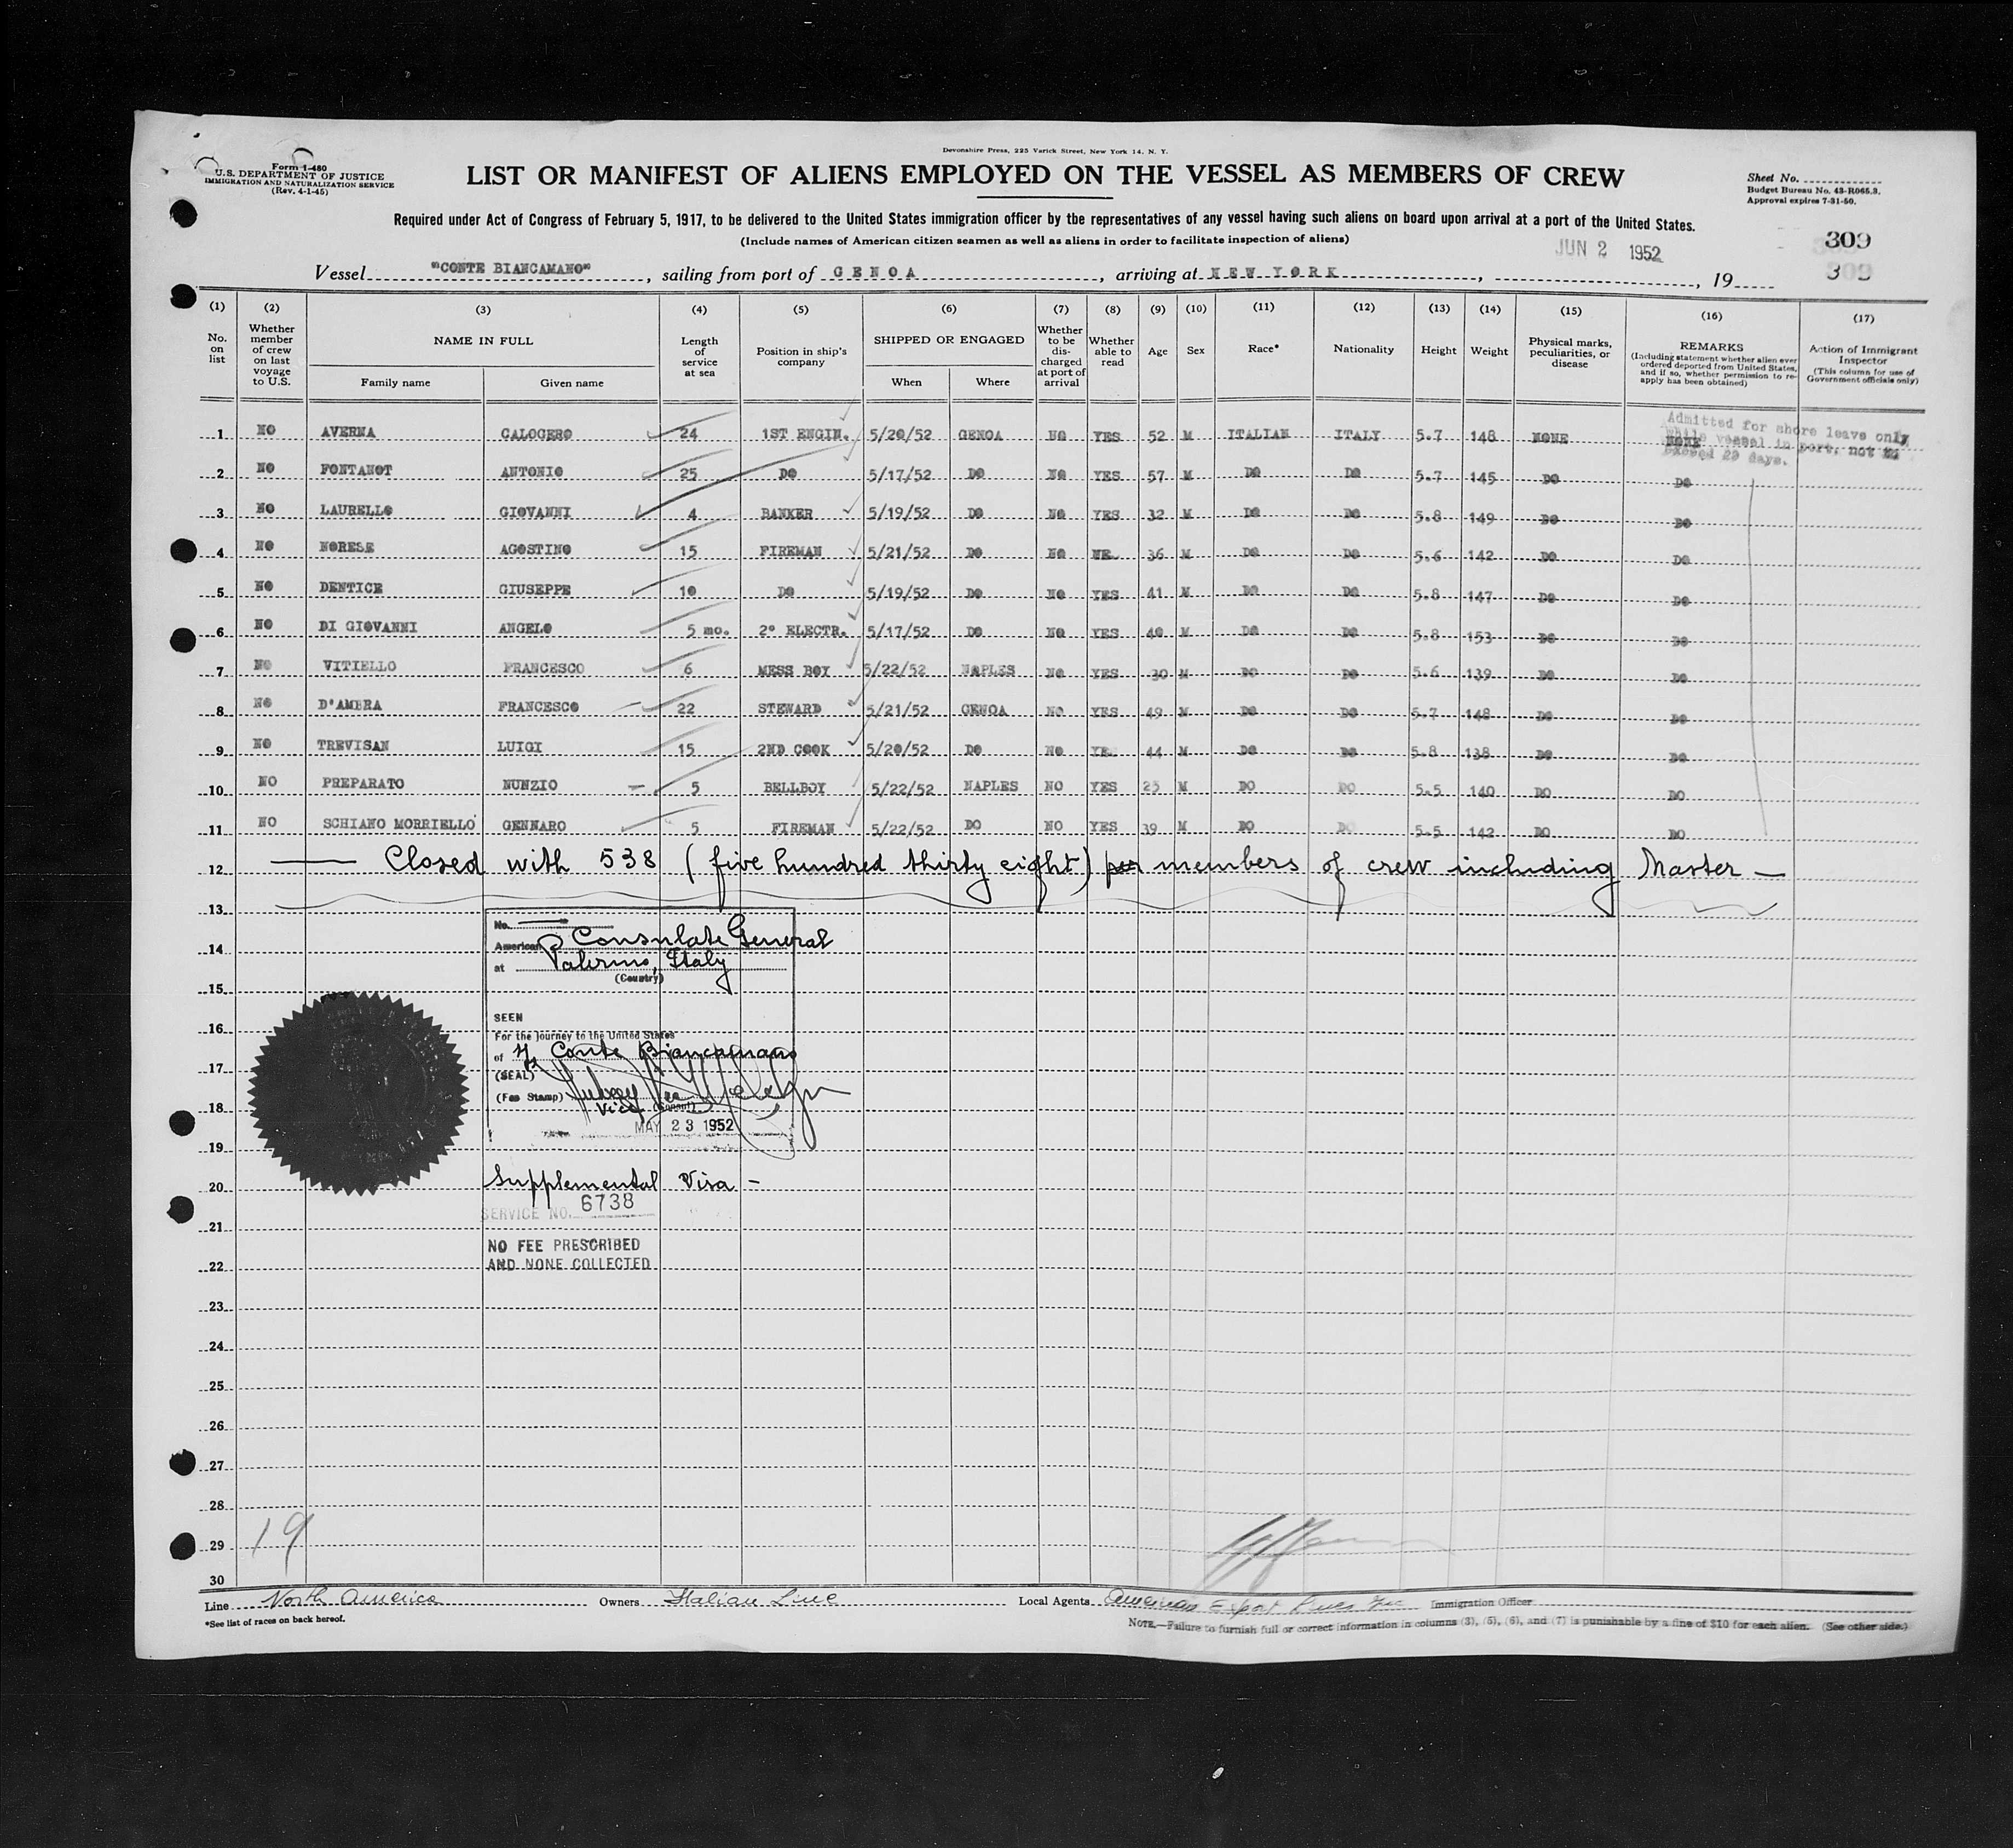 Devonshire Press, 225 Varick Street, New York 14, N. Y.
Form I-480
U.S. DEPARTMENT OF JUSTICE
IMMIGRATION AND NATURALIZATION SERVICE
(Rev. 4-1-45)
LIST OR MANIFEST OF ALIENS EMPLOYED ON THE VESSEL AS MEMBERS OF CREW
Sheet No.
Budget Bureau No. 43-R065.3.
Approval expires 7-31-50.
Required under Act of Congress of February 5, 1917, to be delivered to the United States immigration officer by the representatives of any vessel having such aliens on board upon arrival at a port of the United States.
(Include names of American citizen seamen as well as aliens in order to facilitate inspection of aliens)
JUN 2 1952
309
Vessel "CONTE BIANCAMANO", sailing from port of GENOA, arriving at NEW YORK, , 19
(1) (2) (3) (4) (5) (6) (7) (8) (9) (10) (11) (12) (13) (14) (15) (16) (17)
No. on list
Whether member of crew on last voyage to U.S.
NAME IN FULL
Family name Given name
Length of service at sea
Position in ship's company
SHIPPED OR ENGAGED
When Where
Whether to be discharged at port of arrival
Whether able to read
Age
Sex
Race*
Nationality
Height
Weight
Physical marks, peculiarities, or disease
REMARKS
(Including statement whether alien ever ordered deported from United States, and if so, whether permission to re-apply has been obtained)
Action of Immigrant Inspector
(This column for use of Government officials only)
Admitted for shore leave only
while vessel in port, not to
exceed 29 days.
1 NO AVERNA CALOGERO 24 1ST ENGIN. 5/20/52 GENOA NO YES 52 M ITALIAN ITALY 5.7 148 NONE NONE
2 NO FONTANOT ANTONIO 25 DO 5/17/52 DO NO YES 57 M DO DO 5.7 145 DO DO
3 NO LAURELLO GIOVANNI 4 BANKER 5/19/52 DO NO YES 32 M DO DO 5.8 149 DO DO
4 NO NORESE AGOSTINO 15 FIREMAN 5/21/52 DO NO 36 M DO DO 5.6 142 DO DO
5 NO DENTICE GIUSEPPE 10 DO 5/19/52 DO NO YES 41 M DO DO 5.8 147 DO DO
6 NO DI GIOVANNI ANGELO 5 mo. 2° ELECTR. 5/17/52 DO NO YES 40 M DO DO 5.8 153 DO DO
7 NO VITIELLO FRANCESCO 6 MESS BOY 5/22/52 NAPLES NO YES 30 M DO DO 5.6 139 DO DO
8 NO D'AMBRA FRANCESCO 22 STEWARD 5/21/52 GENOA NO YES 49 M DO DO 5.7 148 DO DO
9 NO TREVISAN LUIGI 15 2ND COOK 5/20/52 DO NO YE 44 M DO DO 5.8 138 DO DO
10 NO PREPARATO NUNZIO 5 BELLBOY 5/22/52 NAPLES NO YES 25 M DO DO 5.5 140 DO DO
11 NO SCHIANO MORRIELLO GENNARO 5 FIREMAN 5/22/52 DO NO YES 39 M DO DO 5.5 142 DO DO
12 Closed with 538 (five hundred thirty eight) members of crew including Master
13
No.
14 American Consulate General
at Palermo, Italy
(Country)
15
SEEN
16
For the journey to the United States
of Conte Biancamano
17
(SEAL)
(Fee Stamp)
18
Vice (Consul)
MAY 23 1952
19
20 Supplemental Visa -
SERVICE NO. 6738
21
NO FEE PRESCRIBED
22 AND NONE COLLECTED
23
24
25
26
27
28
29
19
30
Line North America Owners Italian Line Local Agents American Export Lines Inc Immigration Officer
*See list of races on back hereof.
NOTE.—Failure to furnish full or correct information in columns (3), (5), (6), and (7) is punishable by a fine of $10 for each alien. (See other side.)